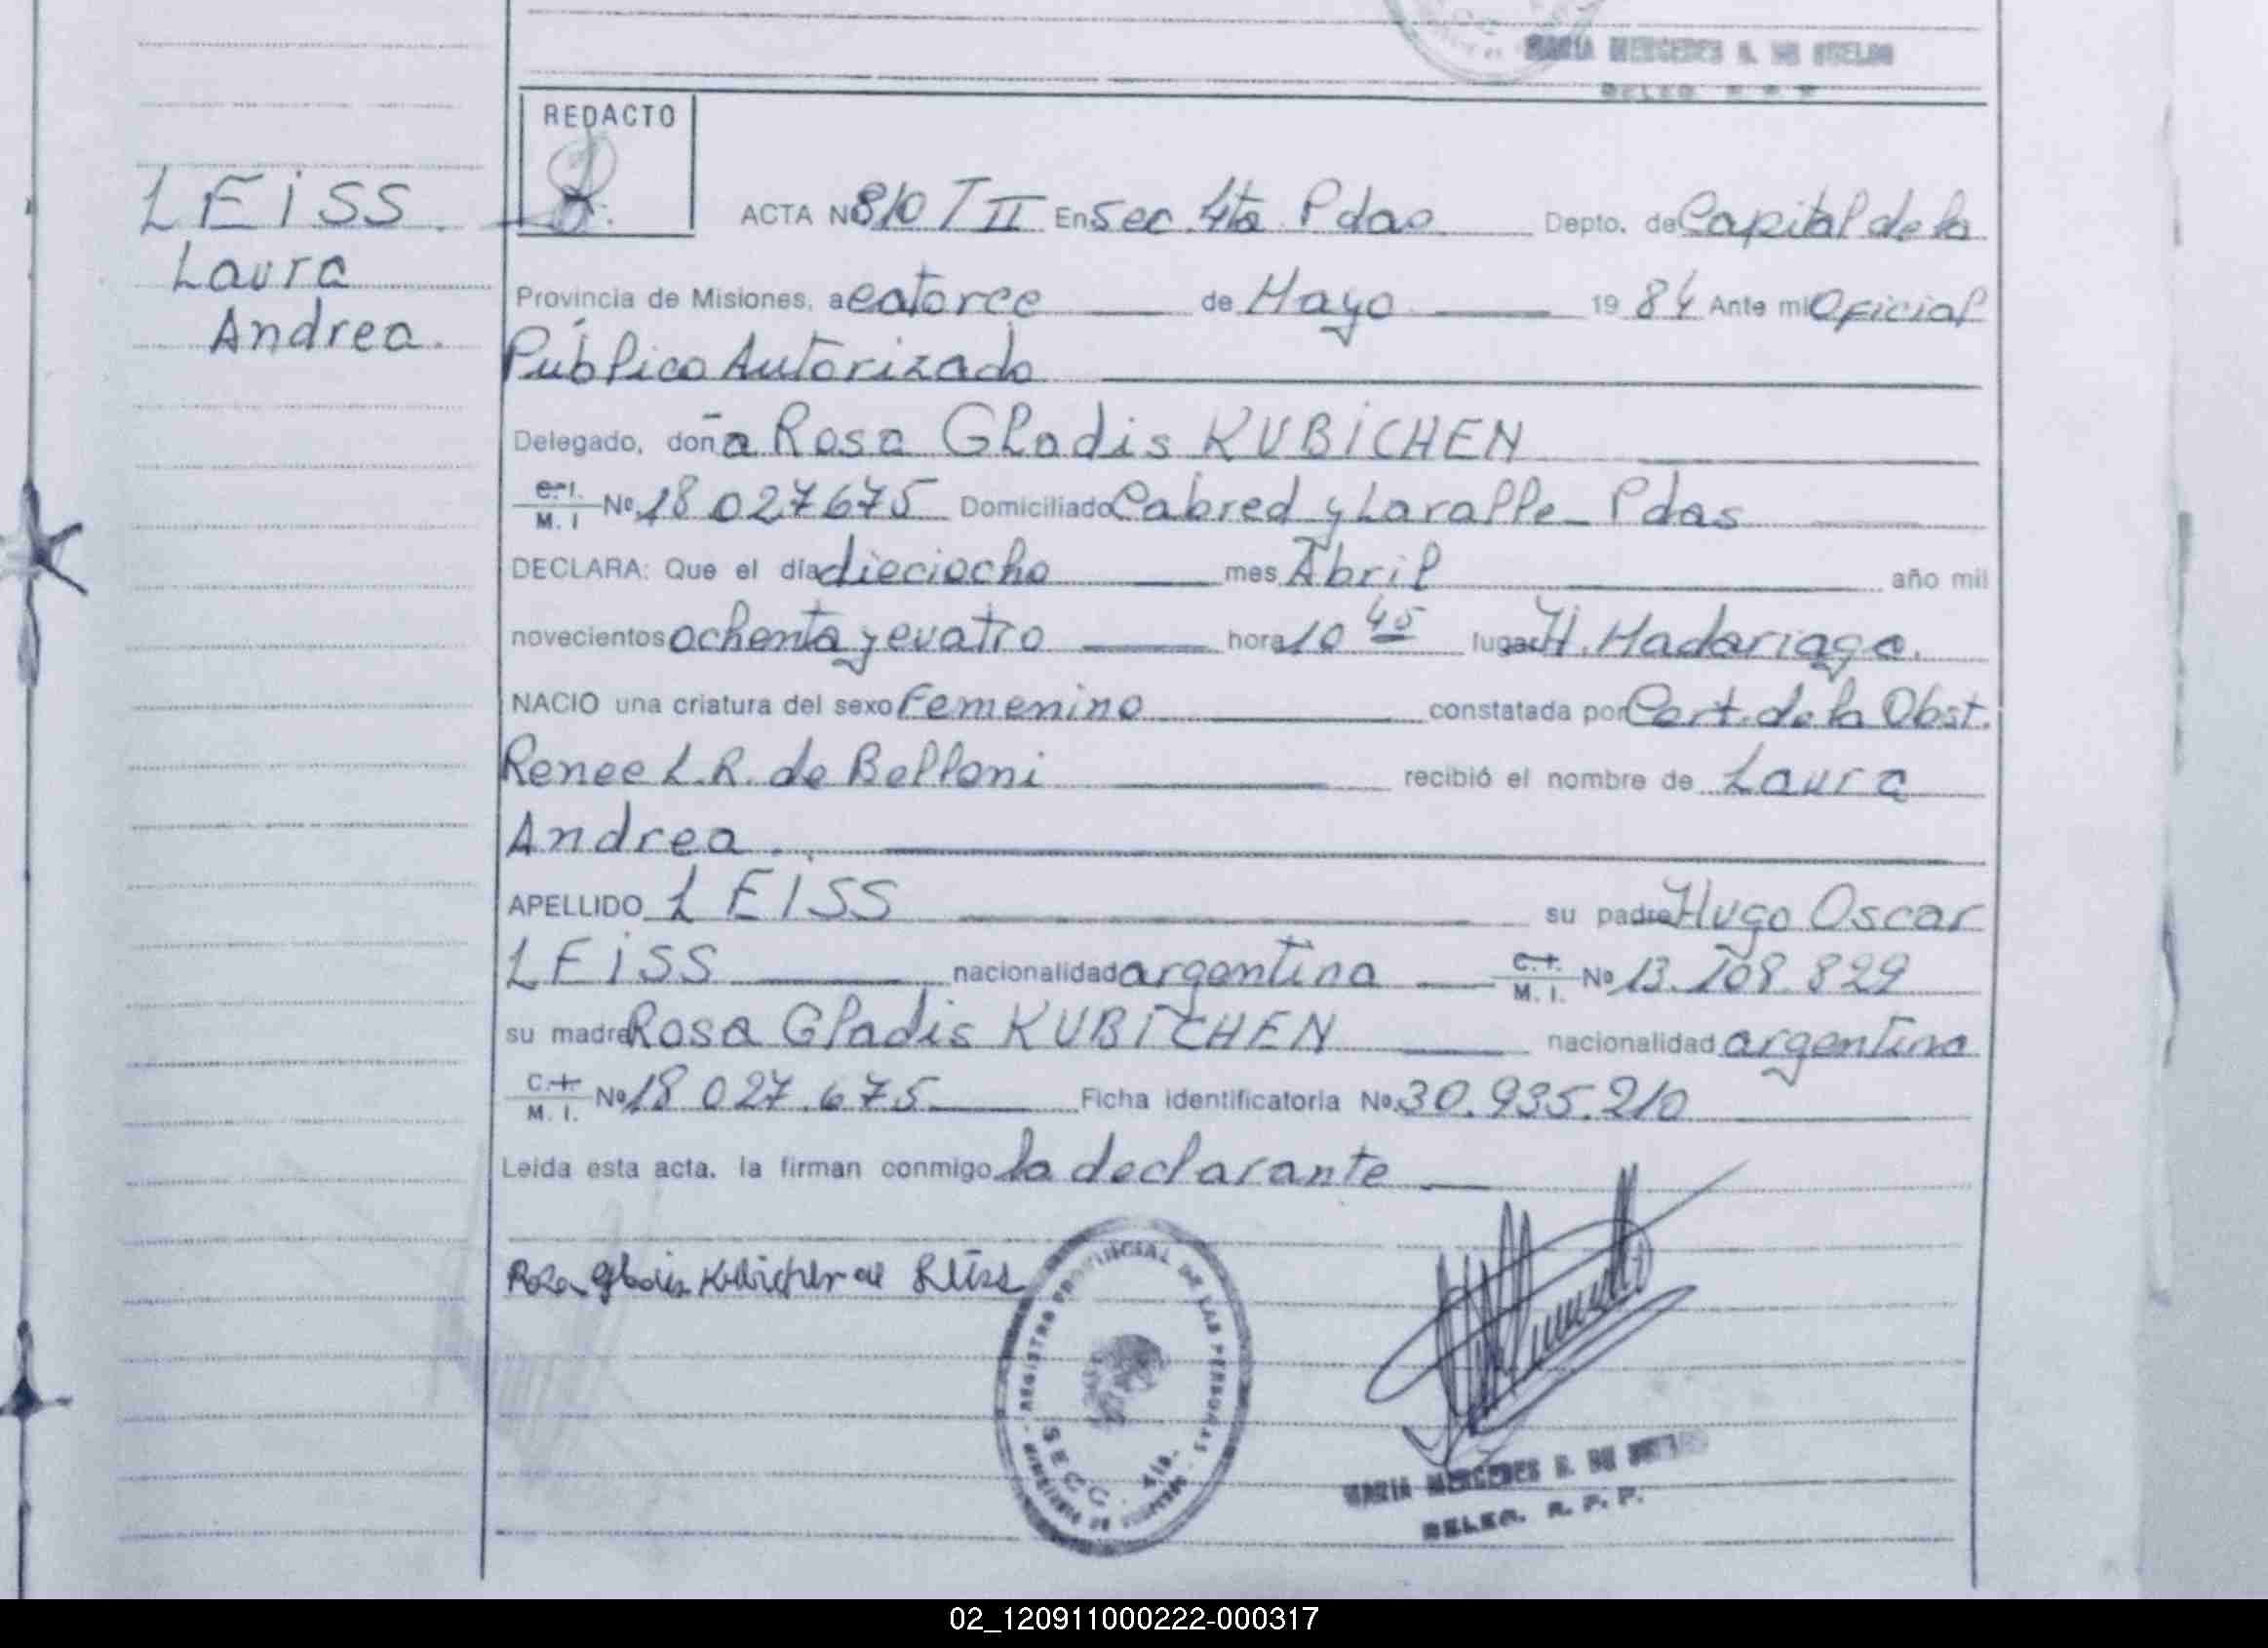 MARIA MERCEDES
DELEG. R. P. P.
REDACTO
LEISS
Laura
Andrea.
ACTA Nº 810 T II En Sec. 4ta Pdas Depto. de Capital de la
Provincia de Misiones, a catorce de Mayo 1984 Ante mi Oficial
Público Autorizado
Delegado, doña Rosa Gladis KUBICHEN
C.I. M. I Nº 18 027675 Domiciliado Cabred y Lavalle - Pdas
DECLARA: Que el día dieciocho mes Abril año mil
novecientos ochenta y cuatro hora 10 45 lugar H. Madariaga.
NACIO una criatura del sexo Femenino constatada por Cert. de la Obst.
Renee L.R. de Belloni recibió el nombre de Laura
Andrea.
APELLIDO LEISS su padre Hugo Oscar
LEISS nacionalidad argentina C.I. M. I. Nº 13.108.829
su madre Rosa Gladis KUBICHEN nacionalidad argentina
C.I. M. I. Nº 18 027.675 Ficha identificatoria Nº 30.935.210
Leida esta acta. la firman conmigo la declarante
Rosa Gladis Kubichen de Leiss
REGISTRO PROVINCIAL DE LAS PERSONAS - MINISTERIO DE
SECC. 4ta.
MARIA MERCEDES
DELEG. R. P. P.
02_120911000222-000317